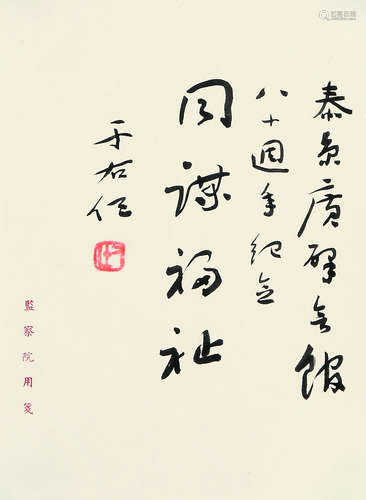 泰京廣肇會館
八十週年紀念
同謀福祉
于右任
監察院用箋